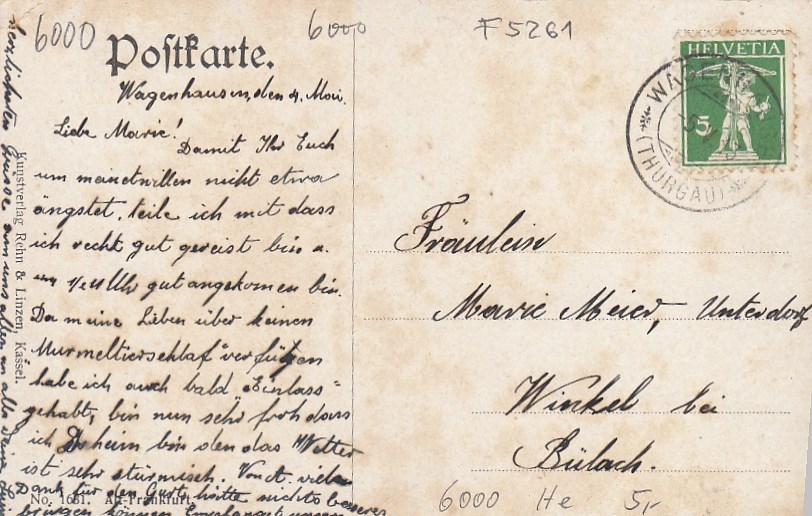 6000
6000
F 5261
Postkarte.
HELVETIA
5
WAGEN
(THURGAU)
Wagenhausen, den 4. Mai.
Liebe Marie!
Damit Ihr Euch
um meinetwillen nicht etwa
ängstet, teile ich mit dass
ich recht gut gereist bin u.
um Uhr gut angekommen bin.
Da meine Lieben über keinen
"Murmeltierschlaf" verfügen
habe ich auch bald "Einlass"
gehabt, bin nun sehr froh dass
ich Daheim bin den das Wetter
ist sehr stürmisch. vielen
Dank für den Gurt, hätte nichts besseres
bringen können
herzlichsten Grüsse von uns allen an alle
Kunstverlag Rehn & Linzen, Kassel.
No. 1631. Alt-Frankfurt.
Fräulein
Marie Meier, Unterdorf
Winkel bei
Bülach.
6000 He 5,-